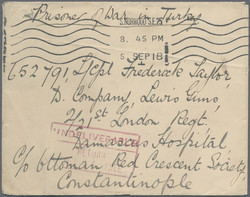 Prisoner of War in Turkey
8. 45 PM
5 SEP 18
652791, L/Cpl Frederick Taylor,
D. Company, Lewis Guns,
2/21st London Regt.
UNDELIVERABLE
Damascus Hospital,
RETURN
c/o Ottoman Red Crescent Society
Constantinople